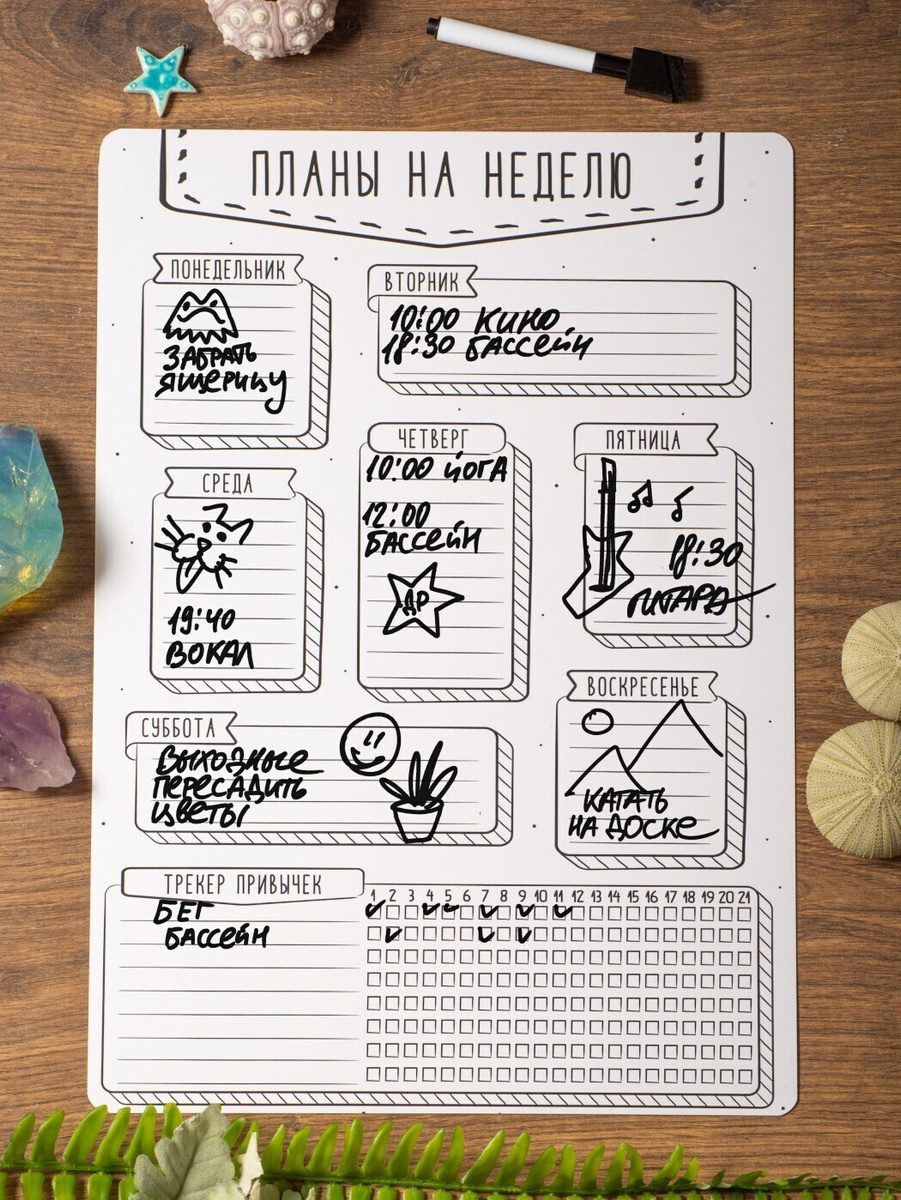 ПЛАНЫ НА НЕДЕЛЮ
ПОНЕДЕЛЬНИК
ЗАБРАТЬ
ЯЩЕРИЦУ
ВТОРНИК
10:00 КИНО
18:30 БАССЕЙН
СРЕДА
19:40
ВОКАЛ
ЧЕТВЕРГ
10:00 ЙОГА
12:00
БАССЕЙН
ДР
ПЯТНИЦА
18:30
ГИТАРА
СУББОТА
ВЫХОДНЫЕ
ПЕРЕСАДИТЬ
ЦВЕТЫ
ВОСКРЕСЕНЬЕ
КАТАТЬ
НА ДОСКЕ
ТРЕКЕР ПРИВЫЧЕК
1 2 3 4 5 6 7 8 9 10 11 12 13 14 15 16 17 18 19 20 21
БЕГ
БАССЕЙН